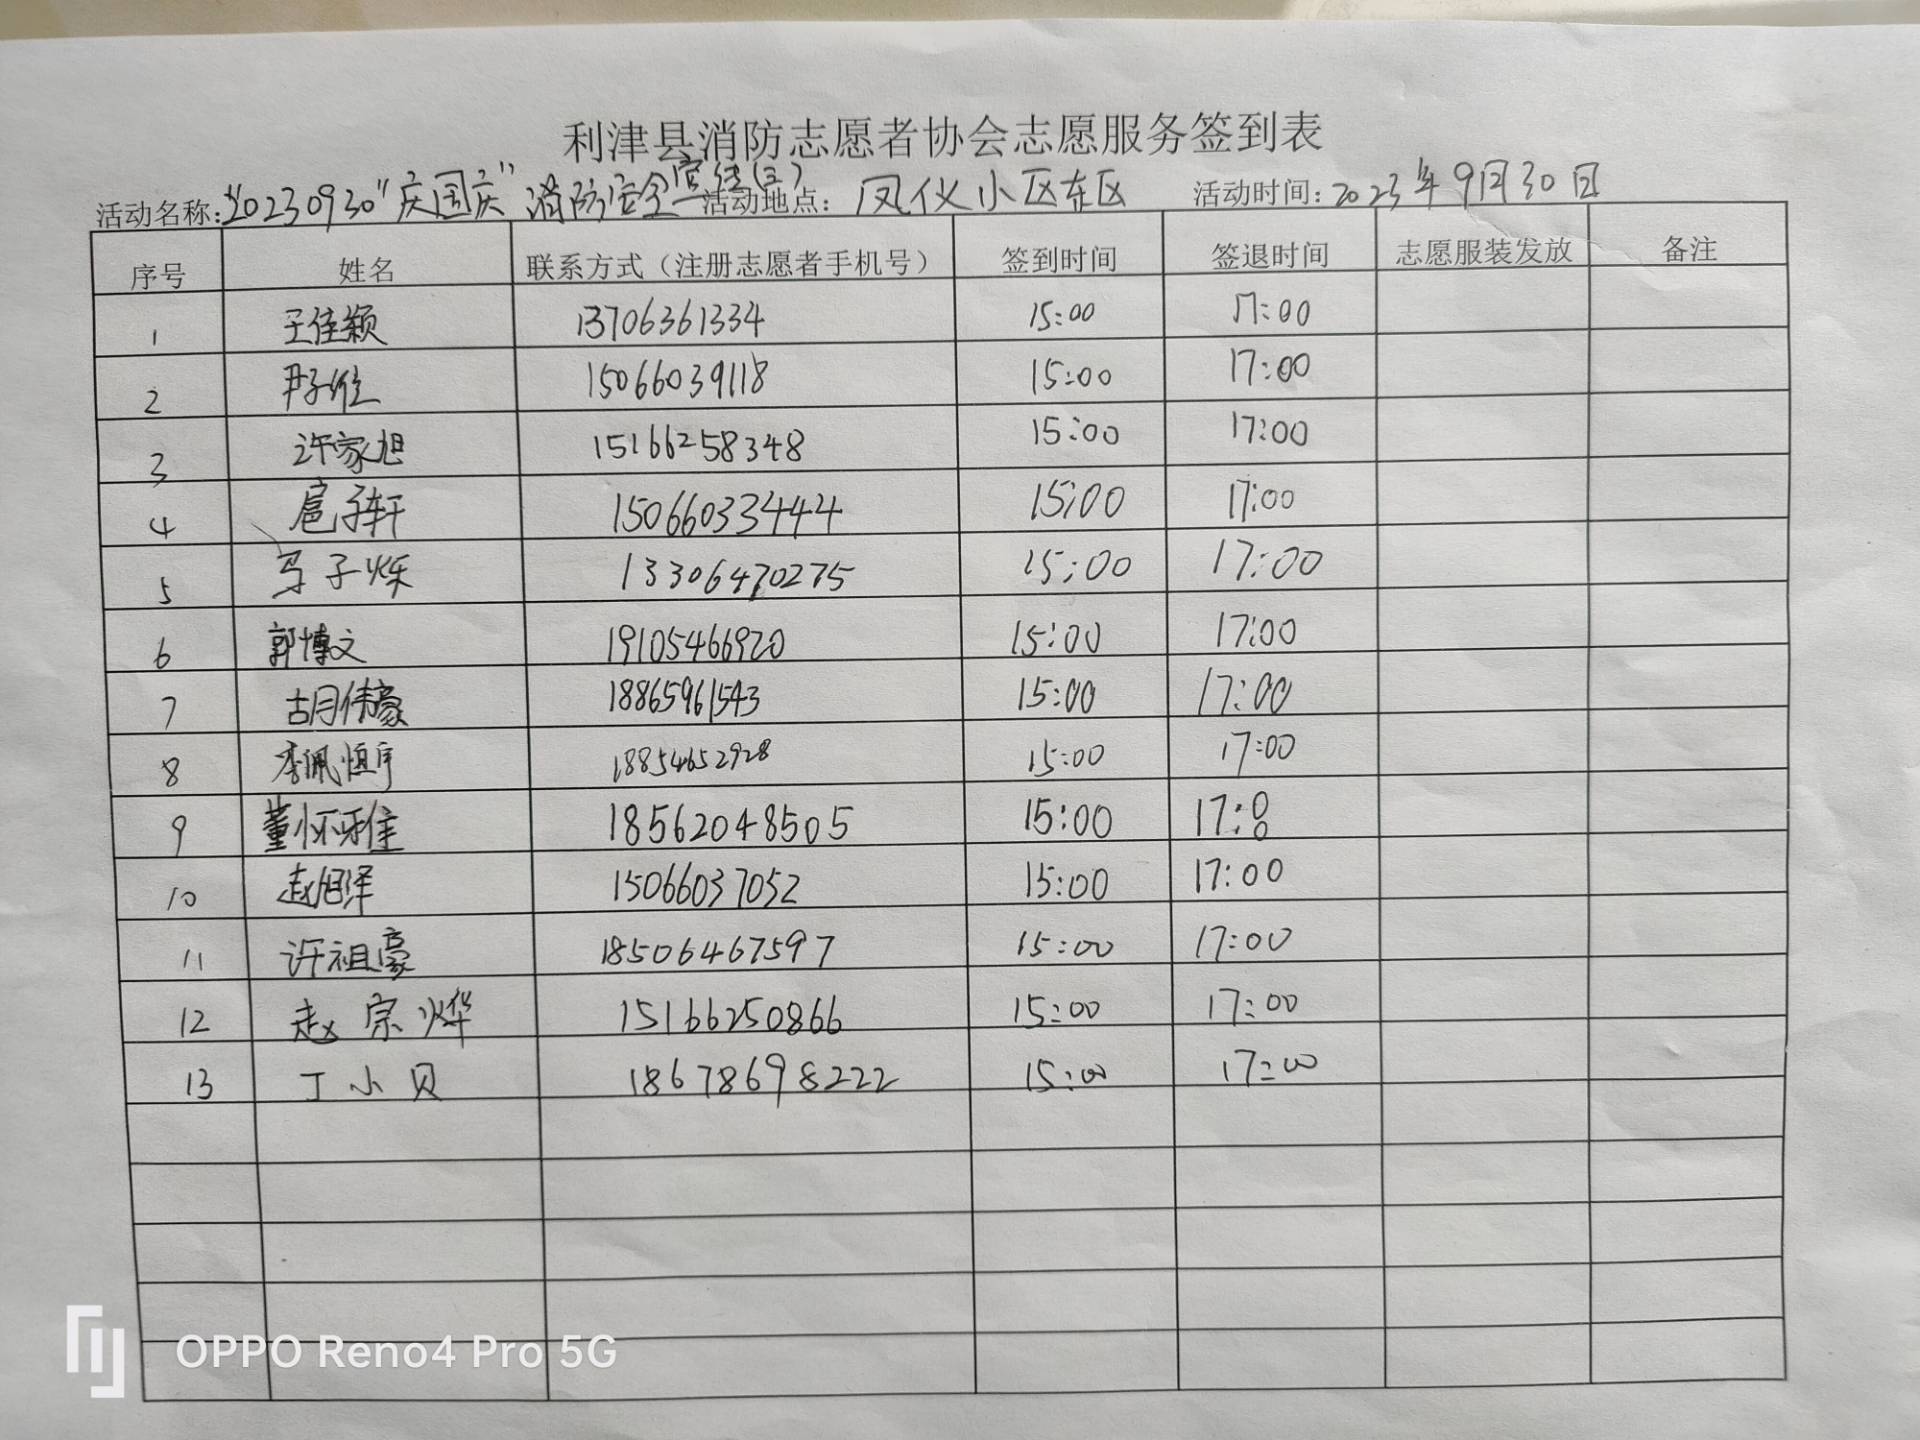 利津县消防志愿者协会志愿服务签到表
活动名称:20230930“庆国庆”消防安全宣传(三) 活动地点: 凤仪小区东区 活动时间:2023年9月30日
序号 姓名 联系方式(注册志愿者手机号) 签到时间 签退时间 志愿服装发放 备注
1 王佳颖 13706361334 15:00 17:00
2 15066039118 15:00 17:00
3 许家旭 15166258348 15:00 17:00
4 扈子轩 15066033444 15:00 17:00
5 马子烁 13306470275 15:00 17:00
6 郭博文 19105466920 15:00 17:00
7 胡伟豪 18865961543 15:00 17:00
8 李佩恒宇 18854652928 15:00 17:00
9 董怀雅 18562048505 15:00 17:00
10 赵旭泽 15066037052 15:00 17:00
11 许祖豪 18506467597 15:00 17:00
12 赵宗烨 15166250866 15:00 17:00
13 丁小贝 18678698222 15:00 17:00
OPPO Reno4 Pro 5G